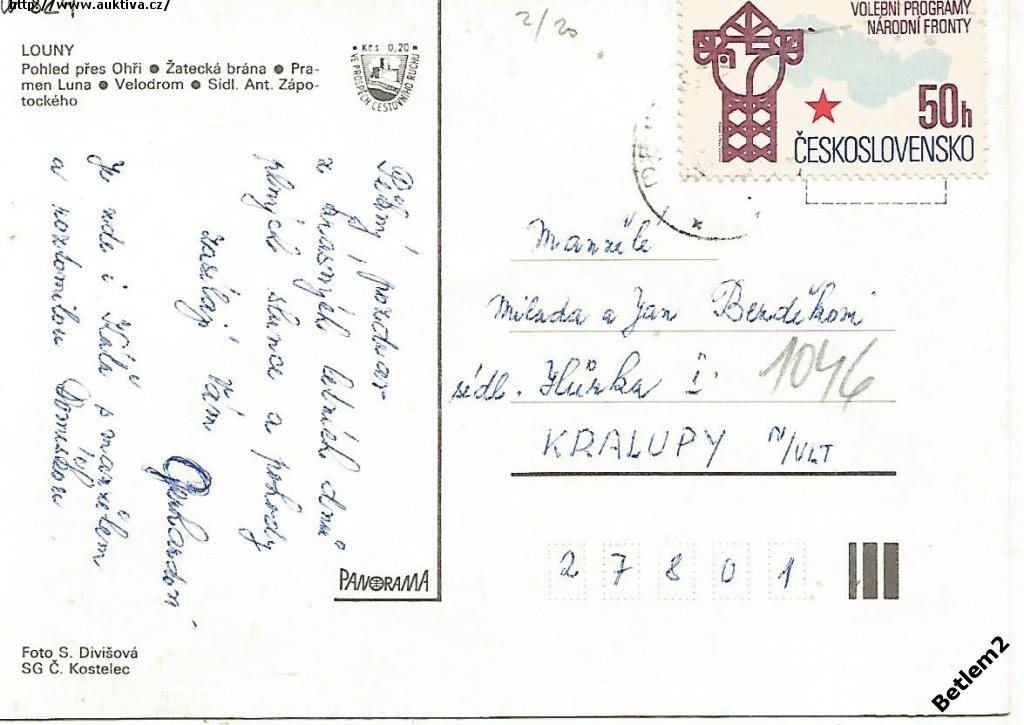 http://www.auktiva.cz/
LOUNY
Pohled přes Ohři ● Žatecká brána ● Pra-
men Luna ● Velodrom ● Sídl. Ant. Zápo-
tockého
Kčs 0,20
VE PROSPĚCH CESTOVNÍHO RUCHU
2/20
VOLEBNÍ PROGRAMY
NÁRODNÍ FRONTY
50h
ČESKOSLOVENSKO
Pěkný pozdrav
z krásných letních dnů
plných slunce a pohody
zasílají Vám
Gerhardovi
Je zde i Káťa s manželem
a roztomilou Dominikou
Manželé
Milada a Jan Berdíkovi
sídl. Hůrka I.
1046
KRALUPY N/VLT
27801
PANORAMA
Foto S. Divišová
SG Č. Kostelec
Betlem2